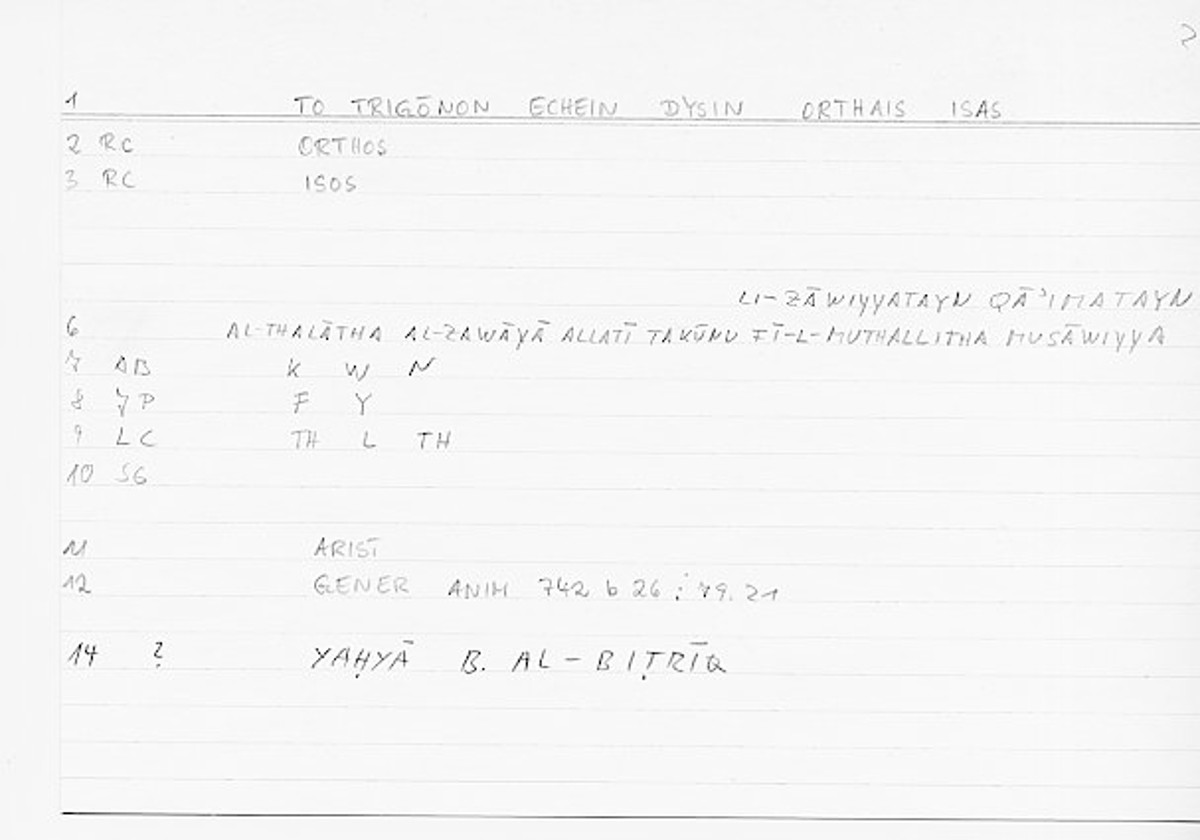 2
1 TO TRIGŌNON ECHEIN DYSIN ORTHAIS ISAS
2 RC ORTHOS
3 RC ISOS
LI-ZĀWIYYATAYN QĀʾIMATAYN
6 AL-THALĀTHA AL-ZAWĀYĀ ALLATĪ TAKŪNU FĪ-L-MUTHALLITHA MUSĀWIYYA
7 AB K W N
8 JP F Y
9 LC TH L TH
10 SG
11 ARIST
12 GENER ANIM 742 b 26 ; 79.21
14 ? YAḤYĀ B. AL-BIṬRĪQ